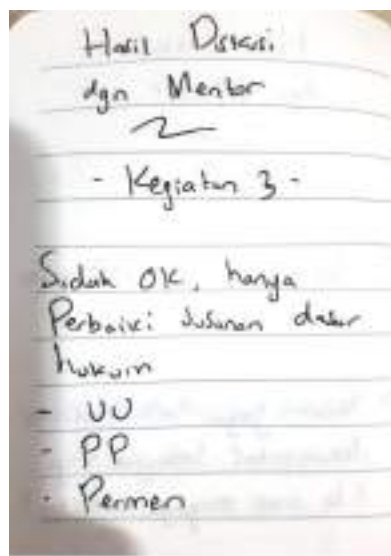 Hasil Diskusi
dgn Mentor
- Kegiatan 3 -
Sudah OK, hanya
Perbaiki susunan dasar
hukum
- UU
- PP
- Permen